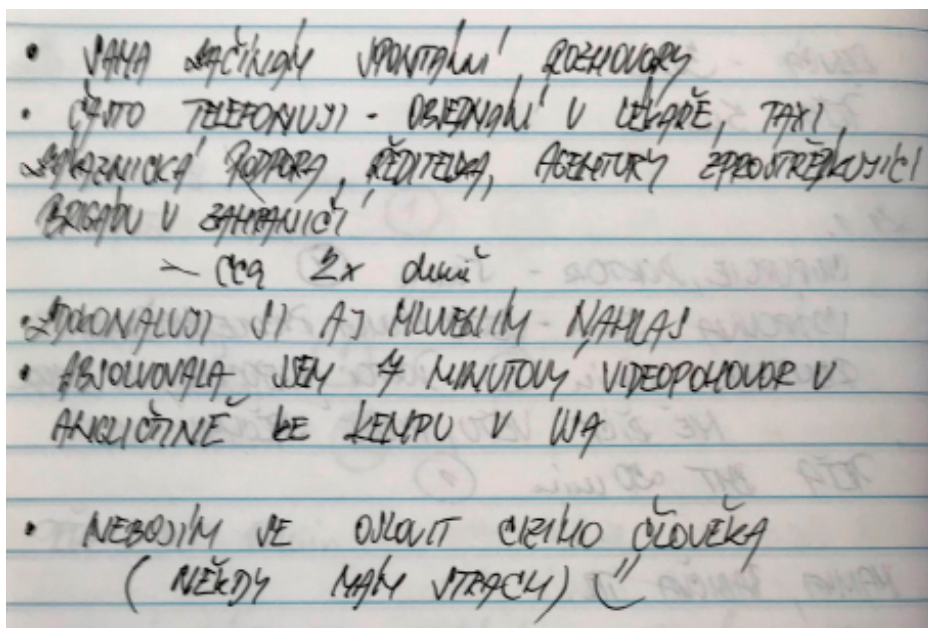 • SAMA ZAČÍNÁM SPONTÁNNÍ ROZHOVORY
• ČASTO TELEFONUJI - OBJEDNÁNÍ U LÉKAŘE, TAXI,
ZÁKAZNICKÁ PODPORA, ŘEDITELKA, AGENTURY ZPROSTŘEDKUJÍCÍ
BRIGÁDU V ZAHRANIČÍ
- cca 2x denně
• ZDOKONALUJI SI AJ MLUVENÍM NAHLAS
• ABSOLVOVALA JSEM 7 MINUTOVÝ VIDEOPOHOVOR V
ANGLIČTINĚ KE KEMPU V
• NEBOJÍM SE OSLOVIT CIZÍHO ČLOVĚKA
( NĚKDY MÁM STRACH)